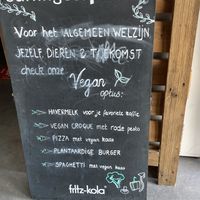 Voor het ALGEMEEN WELZIJN
JEZELF, DIEREN & TOEKOMST
check onze
Vegan
opties:
HAVERMELK voor je favoriete koffie
VEGAN CROQUE met rode pesto
PIZZA met vegan kaas
PLANTAARDIGE BURGER
SPAGHETTI met vegan kaas
fritz-kola